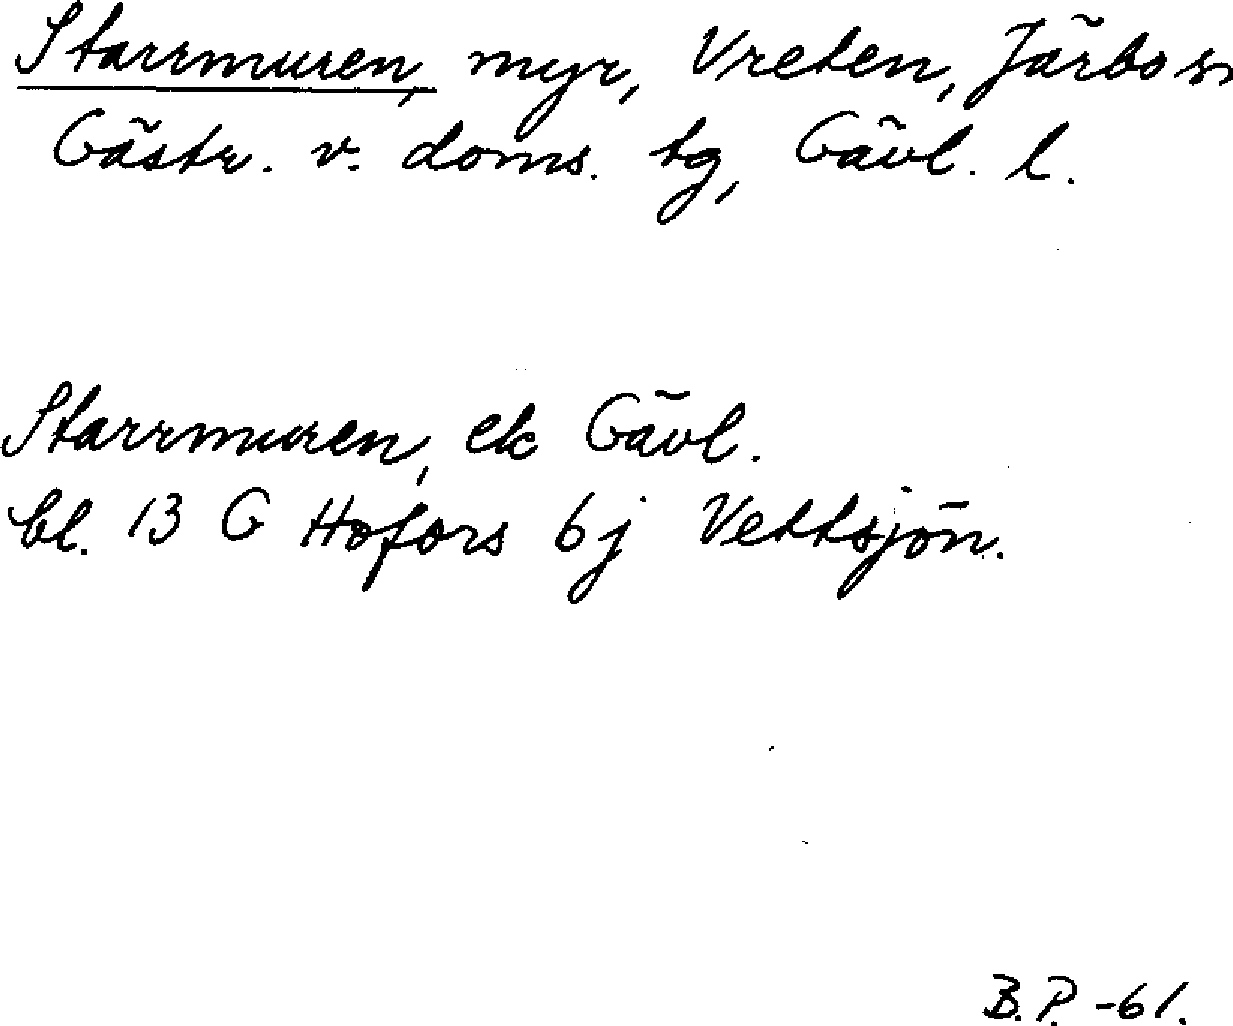 Starrmuren, myr, Vreten, Järbo sn
Gästr. v. doms. tg, Gävl. l.
Starrmuren, ek Gävl.
bl. 13 G Hofors 6j Vettsjön.
B.P. -61.